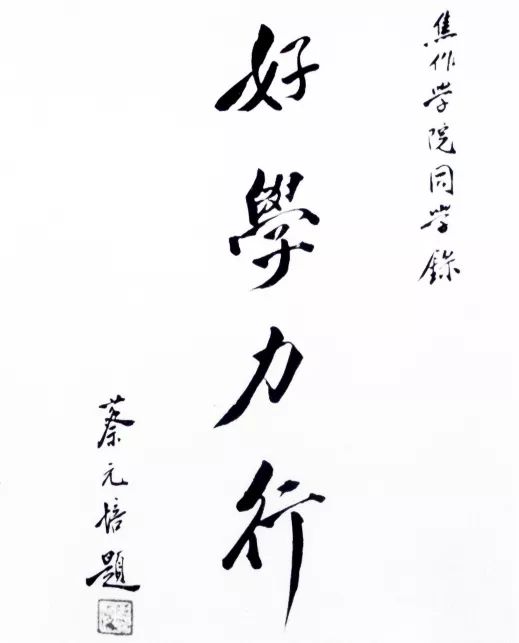 焦作学院同学録
好學力行
蔡元培題